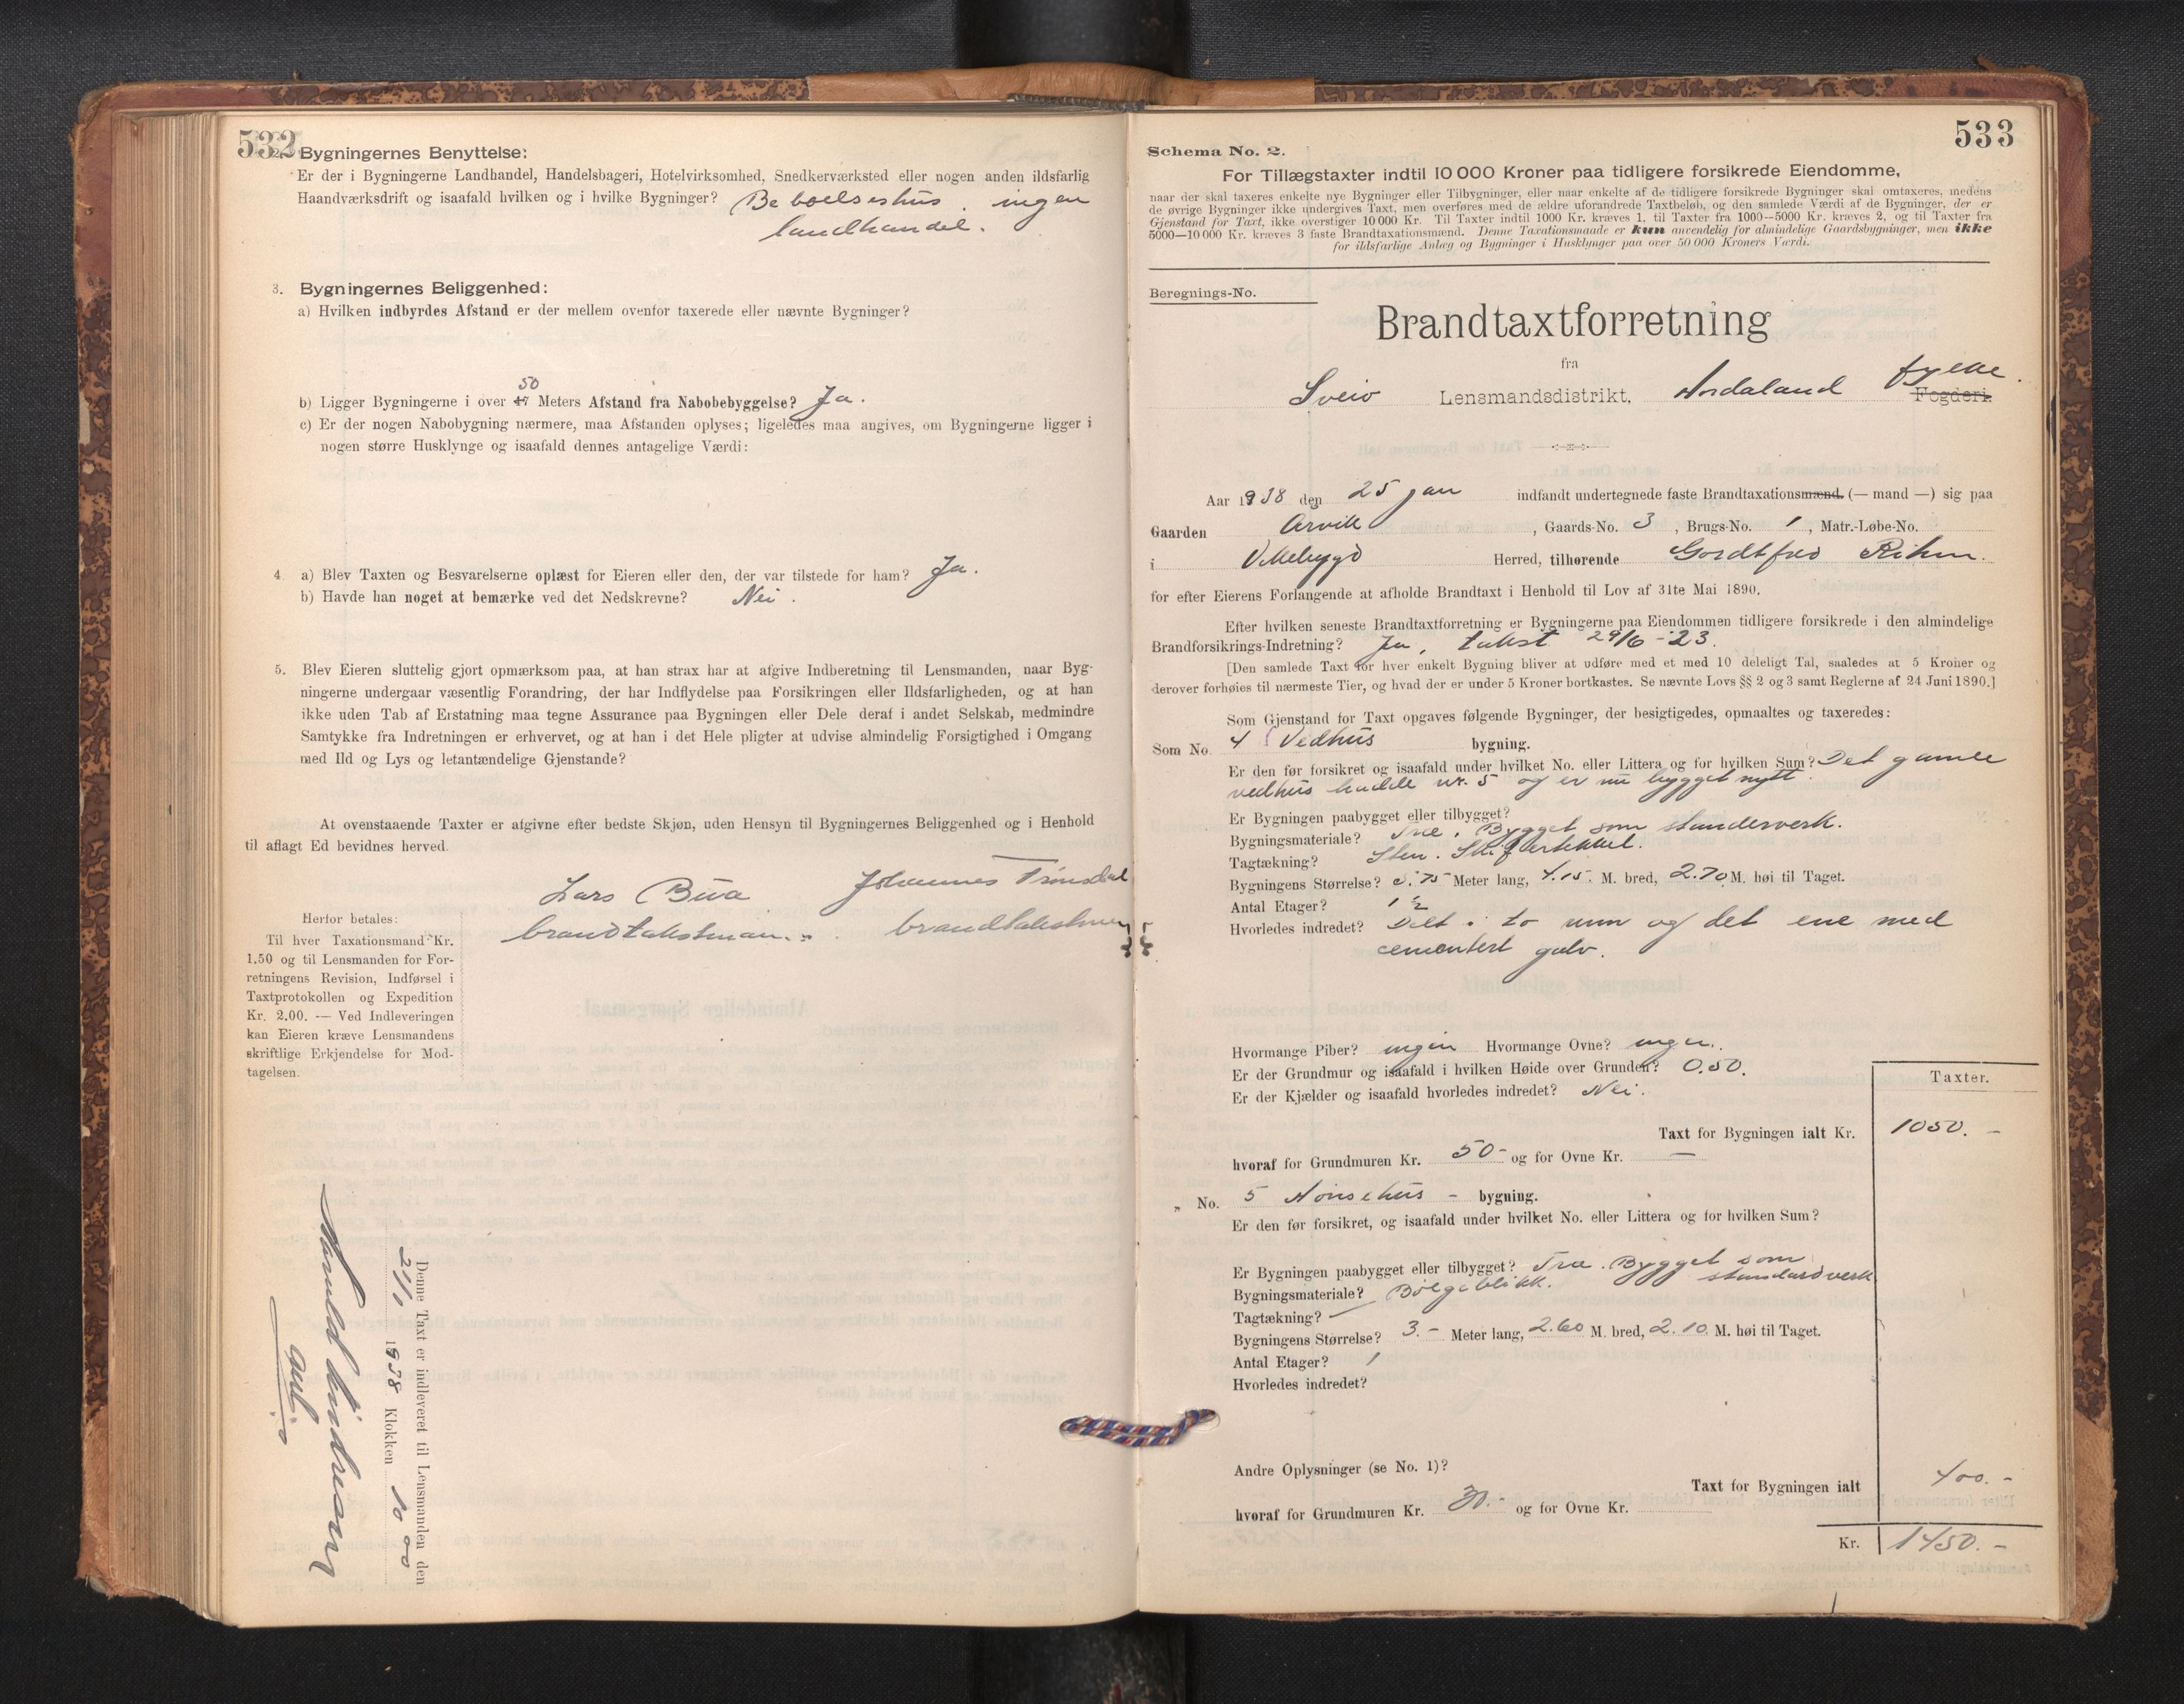 532
2. Bygningernes Benyttelse:
Er der i Bygningerne Landhandel, Handelsbageri, Hotelvirksomhed, Snedkerværksted eller nogen anden ildsfarlig
Haandværksdrift og isaafald hvilken og i hvilke Bygninger? Beboelseshus. ingen
landhandel.
3. Bygningernes Beliggenhed:
a) Hvilken indbyrdes Afstand er der mellem ovenfor taxerede eller nævnte Bygninger?
50
b) Ligger Bygningerne i over 47 Meters Afstand fra Nabobebyggelse? Ja.
c) Er der nogen Nabobygning nærmere, maa Afstanden oplyses; ligeledes maa angives, om Bygningerne ligger i
nogen større Husklynge og isaafald dennes antagelige Værdi:
4. a) Blev Taxten og Besvarelserne oplæst for Eieren eller den, der var tilstede for ham? Ja.
b) Havde han noget at bemærke ved det Nedskrevne? Nei.
5. Blev Eieren sluttelig gjort opmærksom paa, at han strax har at afgive Indberetning til Lensmanden, naar Byg-
ningerne undergaar væsentlig Forandring, der har Indflydelse paa Forsikringen eller Ildsfarligheden, og at han
ikke uden Tab af Erstatning maa tegne Assurance paa Bygningen eller Dele deraf i andet Selskab, medmindre
Samtykke fra Indretningen er erhvervet, og at han i det Hele pligter at udvise almindelig Forsigtighed i Omgang
med Ild og Lys og letantændelige Gjenstande?
At ovenstaaende Taxter er afgivne efter bedste Skjøn, uden Hensyn til Bygningernes Beliggenhed og i Henhold
til aflagt Ed bevidnes herved.
Lars Bua Johannes
brandtakstman. brandtakstman
Herfor betales:
Til hver Taxationsmand Kr.
1.50 og til Lensmanden for For-
retningens Revision, Indførsel i
Taxtprotokollen og Expedition
Kr. 2.00. — Ved Indleveringen
kan Eieren kræve Lensmandens
skriftlige Erkjendelse for Mod-
tagelsen.
Denne Taxt er indleveret til Lensmanden den
1938 Klokken 10 00
533
Schema No. 2.
For Tillægstaxter indtil 10 000 Kroner paa tidligere forsikrede Eiendomme,
naar der skal taxeres enkelte nye Bygninger eller Tilbygninger, eller naar enkelte af de tidligere forsikrede Bygninger skal omtaxeres, medens
de øvrige Bygninger ikke undergives Taxt, men overføres med de ældre uforandrede Taxtbeløb, og den samlede Værdi af de Bygninger, der er
Gjenstand for Taxt, ikke overstiger 10 000 Kr. Til Taxter indtil 1000 Kr. kræves 1, til Taxter fra 1000—5000 Kr. kræves 2, og til Taxter fra
5000—10 000 Kr. kræves 3 faste Brandtaxationsmænd. Denne Taxationsmaade er kun anvendelig for almindelige Gaardsbygninger, men ikke
for ildsfarlige Anlæg og Bygninger i Husklynger paa over 50 000 Kroners Værdi.
Beregnings-No.
Brandtaxtforretning
fra
Sveio Lensmandsdistrikt, Hordaland fylke. Fogderi.
Aar 1938 den 25 jan indfandt undertegnede faste Brandtaxationsmænd. (— mand —) sig paa
Gaarden Arvik, Gaards-No. 3, Brugs-No. 1, Matr.-Løbe-No.
i Valebygd Herred, tilhørende
for efter Eierens Forlangende at afholde Brandtaxt i Henhold til Lov af 31te Mai 1890.
Efter hvilken seneste Brandtaxtforretning er Bygningerne paa Eiendommen tidligere forsikrede i den almindelige
Brandforsikrings-Indretning? Ja, takst 29/6 - 23.
[Den samlede Taxt for hver enkelt Bygning bliver at udføre med et med 10 deleligt Tal, saaledes at 5 Kroner og
derover forhøies til nærmeste Tier, og hvad der er under 5 Kroner bortkastes. Se nævnte Lovs §§ 2 og 3 samt Reglerne af 24 Juni 1890.]
Som Gjenstand for Taxt opgaves følgende Bygninger, der besigtigedes, opmaaltes og taxeredes:
Som No. 4 Vedhus bygning.
Er den før forsikret og isaafald under hvilket No. eller Littera og for hvilken Sum? Det gamle
vedhus hadde nr. 5 og er nu bygget nytt.
Er Bygningen paabygget eller tilbygget?
Bygningsmateriale? Træ. Bygget som standerverk.
Tagtækning? Sten.
Bygningens Størrelse? 5.75 Meter lang, 4.15. M. bred, 2.70 M. høi til Taget.
Antal Etager? 1 ½
Hvorledes indredet? Delt i to rum og det ene med
cementert gulv.
Hvormange Piber? ingen Hvormange Ovne? ingen.
Er der Grundmur og isaafald i hvilken Høide over Grunden? 0.50.
Er der Kjælder og isaafald hvorledes indredet? Nei.
Taxter.
Taxt for Bygningen ialt Kr. 1050. –
hvoraf for Grundmuren Kr. 50- og for Ovne Kr. —
„ No. 5 Hønsehus - bygning.
Er den før forsikret, og isaafald under hvilket No. eller Littera og for hvilken Sum?
Er Bygningen paabygget eller tilbygget? Træ. Bygget som
standardverk
Bygningsmateriale? Bølgeblikk.
Tagtækning? —
Bygningens Størrelse? 3.- Meter lang, 2.60 M. bred, 2.10 M. høi til Taget.
Antal Etager? 1
Hvorledes indredet?
Andre Oplysninger (se No. 1)?
Taxt for Bygningen ialt 400. -
hvoraf for Grundmuren Kr. 30.- og for Ovne Kr.
Kr. 1450. -